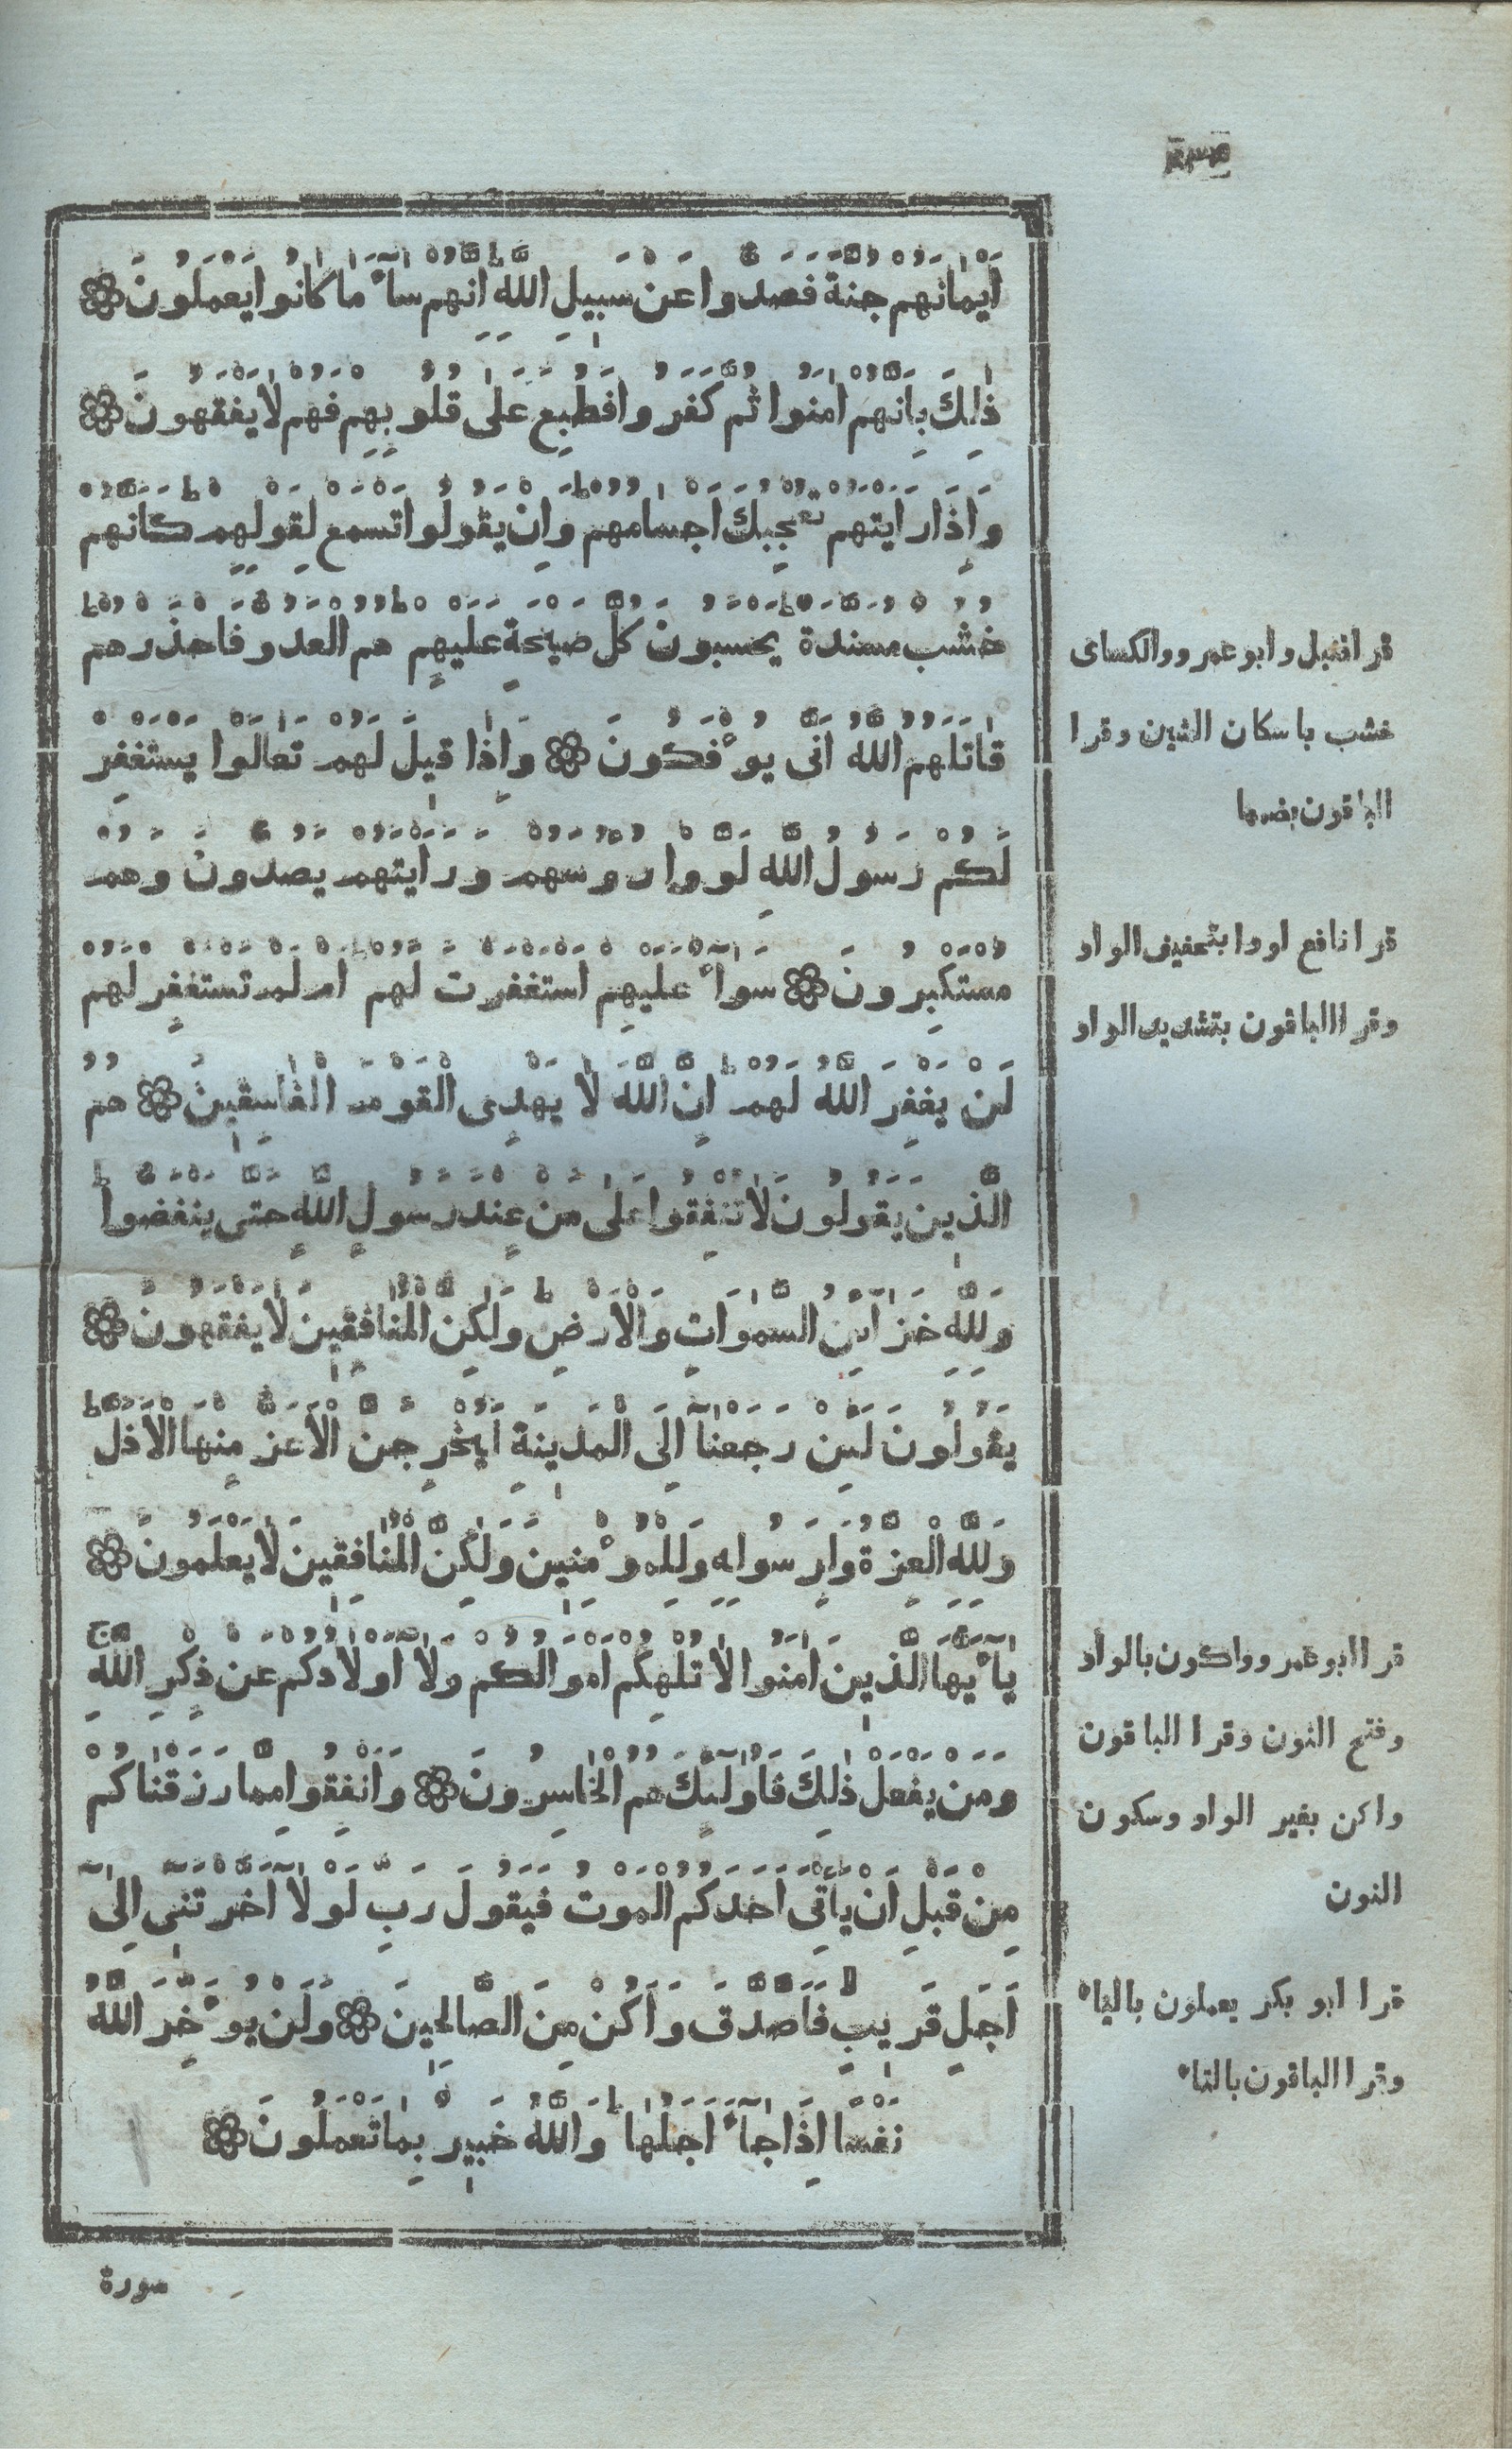 أَيْمَانَهُمْ جُنَّةً فَصَدُّوا عَنْ سَبِيلِ اللَّهِ ۖ إِنَّهُمْ سَآءَ مَا كَانُوا يَعْمَلُونَ
ذٰلِكَ بِأَنَّهُمْ اٰمَنُوا ثُمَّ كَفَرُوا فَطُبِعَ عَلٰى قُلُوبِهِمْ فَهُمْ لَا يَفْقَهُونَ
وَإِذَا رَأَيْتَهُمْ تُعْجِبُكَ أَجْسَامُهُمْ ۖ وَإِنْ يَقُولُوا تَسْمَعْ لِقَوْلِهِمْ ۖ كَأَنَّهُمْ
خُشُبٌ مُسَنَّدَةٌ ۖ يَحْسَبُونَ كُلَّ صَيْحَةٍ عَلَيْهِمْ ۖ هُمُ الْعَدُوُّ فَاحْذَرْهُمْ
قَاتَلَهُمُ اللَّهُ أَنّٰى يُؤْفَكُونَ وَإِذَا قِيلَ لَهُمْ تَعَالَوْا يَسْتَغْفِرْ
لَكُمْ رَسُولُ اللَّهِ لَوَّوْا رُءُوسَهُمْ وَرَأَيْتَهُمْ يَصُدُّونَ وَهُمْ
مُسْتَكْبِرُونَ سَوَآءٌ عَلَيْهِمْ أَسْتَغْفَرْتَ لَهُمْ أَمْ لَمْ تَسْتَغْفِرْ لَهُمْ
لَنْ يَغْفِرَ اللَّهُ لَهُمْ ۖ إِنَّ اللَّهَ لَا يَهْدِى الْقَوْمَ الْفَاسِقِينَ هُمُ
الَّذِينَ يَقُولُونَ لَا تُنْفِقُوا عَلٰى مَنْ عِنْدَ رَسُولِ اللَّهِ حَتّٰى يَنْفَضُّوا
وَلِلَّهِ خَزَآئِنُ السَّمٰوَاتِ وَالْأَرْضِ وَلٰكِنَّ الْمُنَافِقِينَ لَا يَفْقَهُونَ
يَقُولُونَ لَئِنْ رَجَعْنَآ إِلَى الْمَدِينَةِ لَيُخْرِجَنَّ الْأَعَزُّ مِنْهَا الْأَذَلَّ
وَلِلَّهِ الْعِزَّةُ وَلِرَسُولِهِ وَلِلْمُؤْمِنِينَ وَلٰكِنَّ الْمُنَافِقِينَ لَا يَعْلَمُونَ
يَآأَيُّهَا الَّذِينَ اٰمَنُوا لَا تُلْهِكُمْ أَمْوَالُكُمْ وَلَا أَوْلَادُكُمْ عَنْ ذِكْرِ اللَّهِ
وَمَنْ يَفْعَلْ ذٰلِكَ فَأُولٰٓئِكَ هُمُ الْخَاسِرُونَ وَأَنْفِقُوا مِمَّا رَزَقْنَاكُمْ
مِنْ قَبْلِ أَنْ يَأْتِىَ أَحَدَكُمُ الْمَوْتُ فَيَقُولَ رَبِّ لَوْلَا أَخَّرْتَنِى إِلٰىٓ
أَجَلٍ قَرِيبٍ فَأَصَّدَّقَ وَأَكُنْ مِنَ الصَّالِحِينَ وَلَنْ يُؤَخِّرَ اللَّهُ
نَفْسًا إِذَا جَآءَ أَجَلُهَا وَاللَّهُ خَبِيرٌ بِمَا تَعْمَلُونَ
قرا قنبل وابو عمرو والكساى
خشب باسكان الشين وقرا
الباقون بضمها
قرا نافع لووا بتخفيف الواو
وقرا الباقون بتشديد الواو
قرا ابو عمرو واكون بالواو
وفتح النون وقرا الباقون
واكن بغير الواو وسكون
النون
قرا ابو بكر يعملون بالياء
وقرا الباقون بالتاء
سورة